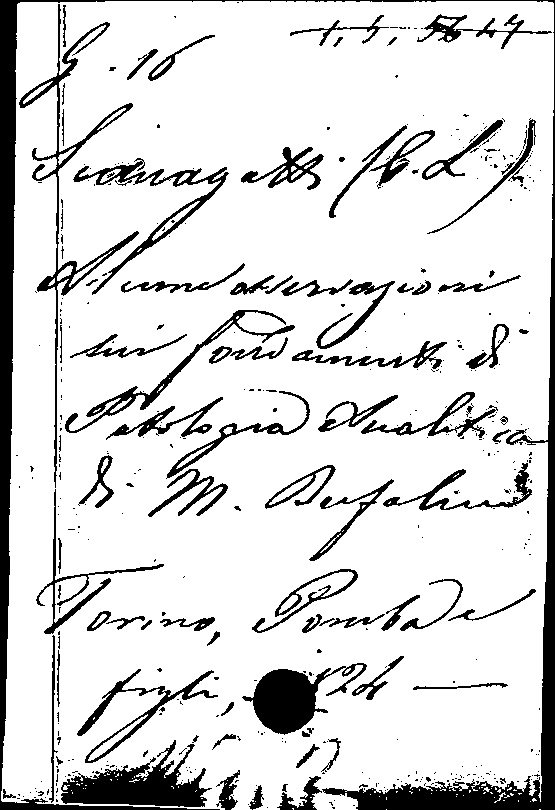 1, 5, 56 47
G. 16
Scavagetti (C. L.)
Alcune osservazioni
sui fondamenti di
Patologia Analitica
di M. Bufalini
Torino, Pomba e
figli, 1824 —